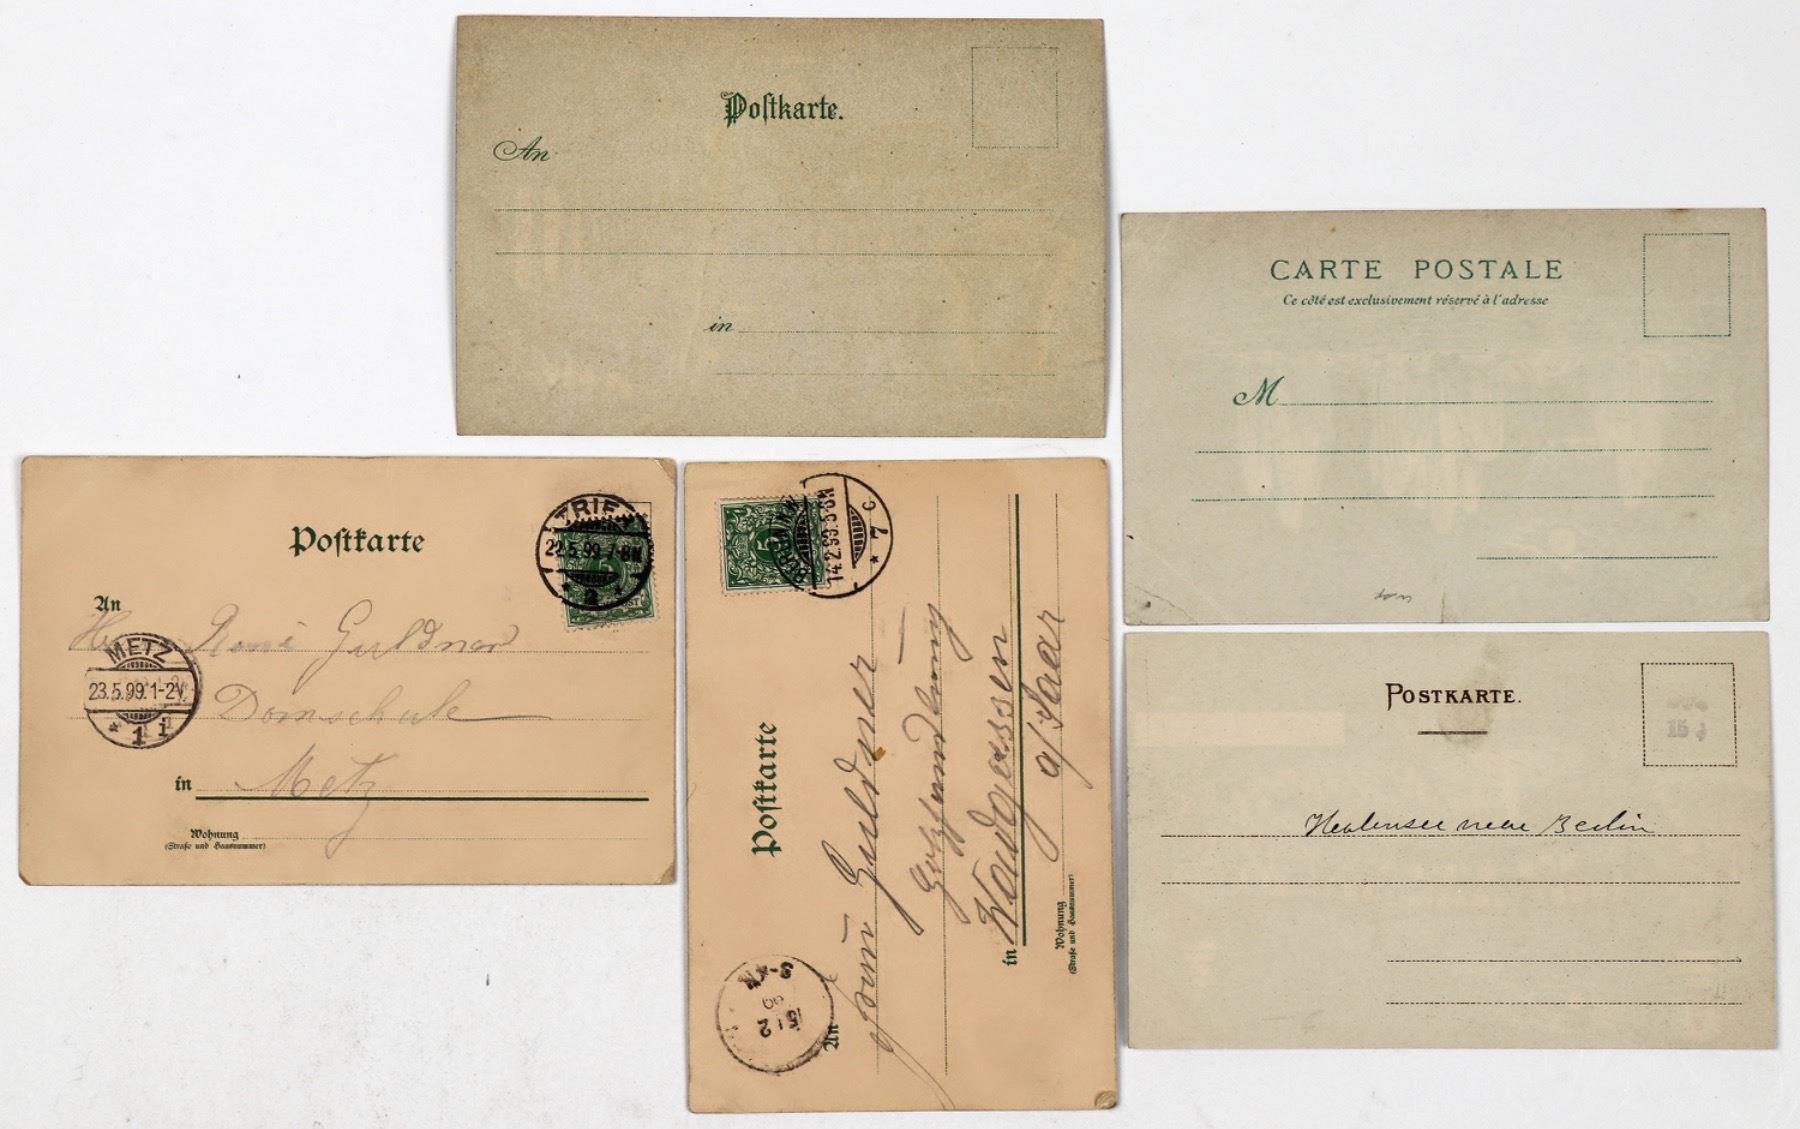 Postkarte.
An
in
CARTE POSTALE
Ce côté est exclusivement réservé à l'adresse
M
Postkarte
TRIER
22.5.99.7-8N
2
An
Herr René Guldner
METZ
23.5.99.1-2V.
1
Domschule
in Metz
Wohnung
(Straße und Hausnummer)
Postkarte
14.2.99.
An
Guldner
in Wadgassen
a/Saar
Wohnung
(Straße und Hausnummer)
15 2
99
POSTKARTE.
15
Berlin